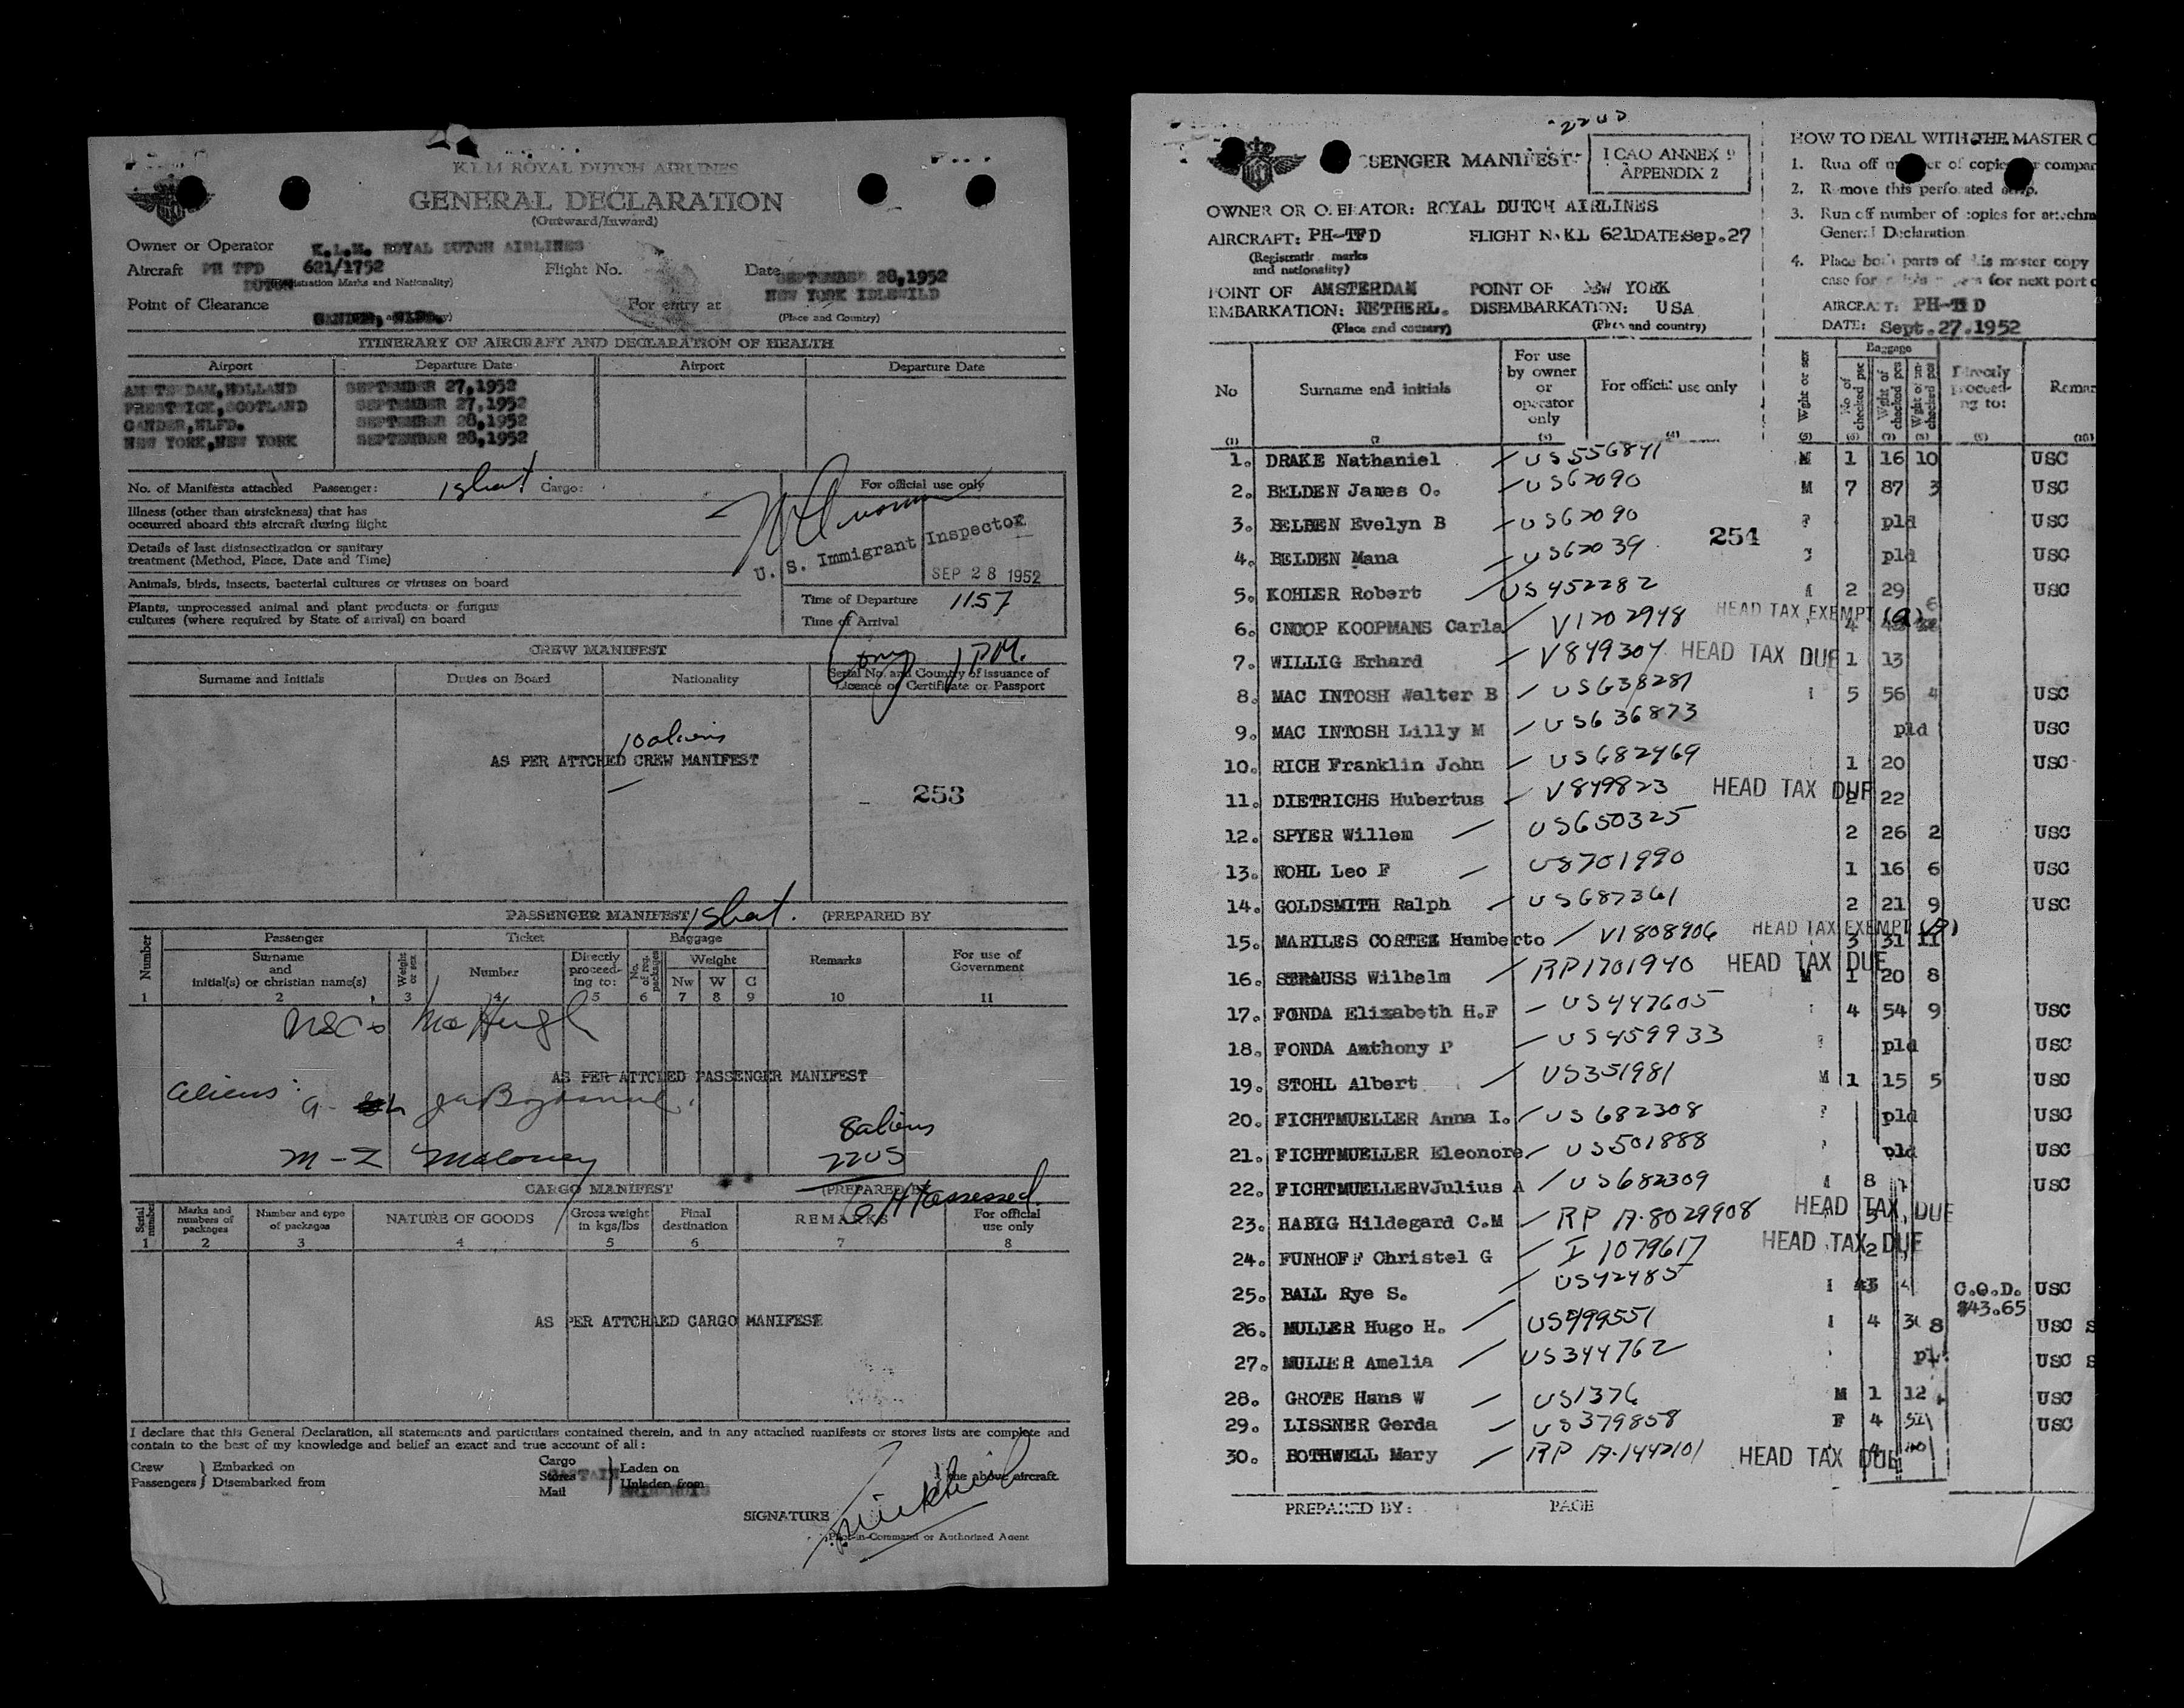 K.L.M ROYAL DUTCH AIRLINES
GENERAL DECLARATION
(Outward/Inward)
Owner or Operator K.L.M. ROYAL DUTCH AIRLINES
Aircraft PH TFD 621/1752 Flight No. Date SEPTEMBER 28,1952
(Registration Marks and Nationality) NEW YORK IDLEWILD
Point of Clearance GANDER, NLFD. For entry at (Place and Country)
ITINERARY OF AIRCRAFT AND DECLARATION OF HEALTH
Airport Departure Date Airport Departure Date
AMSTERDAM,HOLLAND SEPTEMBER 27,1952
PRESTWICK,SCOTLAND SEPTEMBER 27,1952
GANDER,NLFD. SEPTEMBER 28,1952
NEW YORK,NEW YORK SEPTEMBER 28,1952
No. of Manifests attached Passenger: 1 sheet Cargo:
For official use only
Illness (other than airsickness) that has
occurred aboard this aircraft during flight
U. S. Immigrant Inspector
Details of last disinsectization or sanitary
treatment (Method, Place, Date and Time)
SEP 28 1952
Animals, birds, insects, bacterial cultures or viruses on board
Plants, unprocessed animal and plant products or fungus
cultures (where required by State of arrival) on board
Time of Departure 1157
Time of Arrival
1 P.M.
CREW MANIFEST
Surname and Initials Duties on Board Nationality Serial No. and Country of issuance of
Licence or Certificate or Passport
10 aliens
AS PER ATTCHED CREW MANIFEST
253
PASSENGER MANIFEST 1 sheet. (PREPARED BY
Number Passenger Ticket Baggage Remarks For use of
Government
Surname
and
initial(s) or christian name(s) Weight or sex Number Directly
proceed-
ing to: No. of reg. packages Weight
Nw W C
1 2 3 4 5 6 7 8 9 10 11
McHugh
AS PER ATTCHED PASSENGER MANIFEST
aliens:
8 aliens
M-Z Maloney
22 US
CARGO MANIFEST (PREPARED BY
6 HT assessed
Serial number Marks and
numbers of
packages Number and type
of packages NATURE OF GOODS Gross weight
in kgs/lbs Final
destination REMARKS For official
use only
1 2 3 4 5 6 7 8
AS PER ATTCHAED CARGO MANIFEST
I declare that this General Declaration, all statements and particulars contained therein, and in any attached manifests or stores lists are complete and
contain to the best of my knowledge and belief an exact and true account of all:
Crew Passengers } Embarked on Disembarked from
Cargo Stores Mail } Laden on Unladen from } the above aircraft
SIGNATURE
Pilot-in-Command or Authorized Agent
22 US
PASSENGER MANIFEST
ICAO ANNEX 9
APPENDIX 2
OWNER OR OPERATOR: ROYAL DUTCH AIRLINES
AIRCRAFT: PH-TFD FLIGHT No KL 621 DATE: Sep.27
(Registration marks
and nationality)
POINT OF AMSTERDAM POINT OF NEW YORK
EMBARKATION: NETHERL. DISEMBARKATION: USA
(Place and country) (Place and country)
HOW TO DEAL WITH THE MASTER C
1. Run off number of copies for compar
2. Remove this perforated strip.
3. Run off number of copies for attachm
General Declaration
4. Place both parts of this master copy
case for next port o
AIRCRAFT: PH-TFD
DATE: Sept.27.1952
No Surname and initials For use
by owner
or
operator
only For official use only Wght or sex Baggage No of checked pcs Wght of checked pcs Wght of un-checked pcs Directly
proceed-
ing to: Remar
(1) (2) (3) (4) (5) (6) (7) (8) (9) (10)
1. DRAKE Nathaniel US556841 M 1 16 10 USC
2. BELDEN James O. US62090 M 7 87 3 USC
3. BELDEN Evelyn B US62090 F pld USC
254
4. BELDEN Mana US62039 pld USC
5. KOHLER Robert US452282 2 29 USC
6. CNOOP KOOPMANS Carla V1202948 HEAD TAX EXEMPT (a) 4
7. WILLIG Erhard V849304 HEAD TAX DUE 1 13
8. MAC INTOSH Walter B US638281 5 56 4 USC
9. MAC INTOSH Lilly M US636873 pld USC
10. RICH Franklin John US682469 1 20 USC
11. DIETRICHS Hubertus V849823 HEAD TAX DUE 2 22
12. SPYER Willem US650325 2 26 2 USC
13. NOHL Leo F US701990 1 16 6 USC
14. GOLDSMITH Ralph US687361 2 21 9 USC
15. MARILES CORTEZ Humberto V1808906 HEAD TAX EXEMPT 3 31 11
16. STRAUSS Wilhelm RP1701940 HEAD TAX DUE M 1 20 8
17. FONDA Elizabeth H.F US447605 4 54 9 USC
18. FONDA Anthony P US459933 pld USC
19. STOHL Albert US351981 M 1 15 5 USC
20. FICHTMUELLER Anna I. US682308 pld USC
21. FICHTMUELLER Eleonore US501888 pld USC
22. FICHTMUELLERVJulius A US682309 8 USC
23. HABIG Hildegard C.M RP A-8029908 HEAD TAX DUE
24. FUNHOFF Christel G I 1079617 HEAD TAX DUE 2
25. BALL Rye S. US42485 C.O.D. USC
$43.65
26. MULLER Hugo H. US499551 4 8 USC S
27. MULLER Amelia US344762 USC S
28. GROTE Hans W US1376 M 1 12 USC
29. LISSNER Gerda US379858 F 4 USC
30. BOTHWELL Mary RP A-1442101 HEAD TAX DUE
PREPARED BY: PAGE